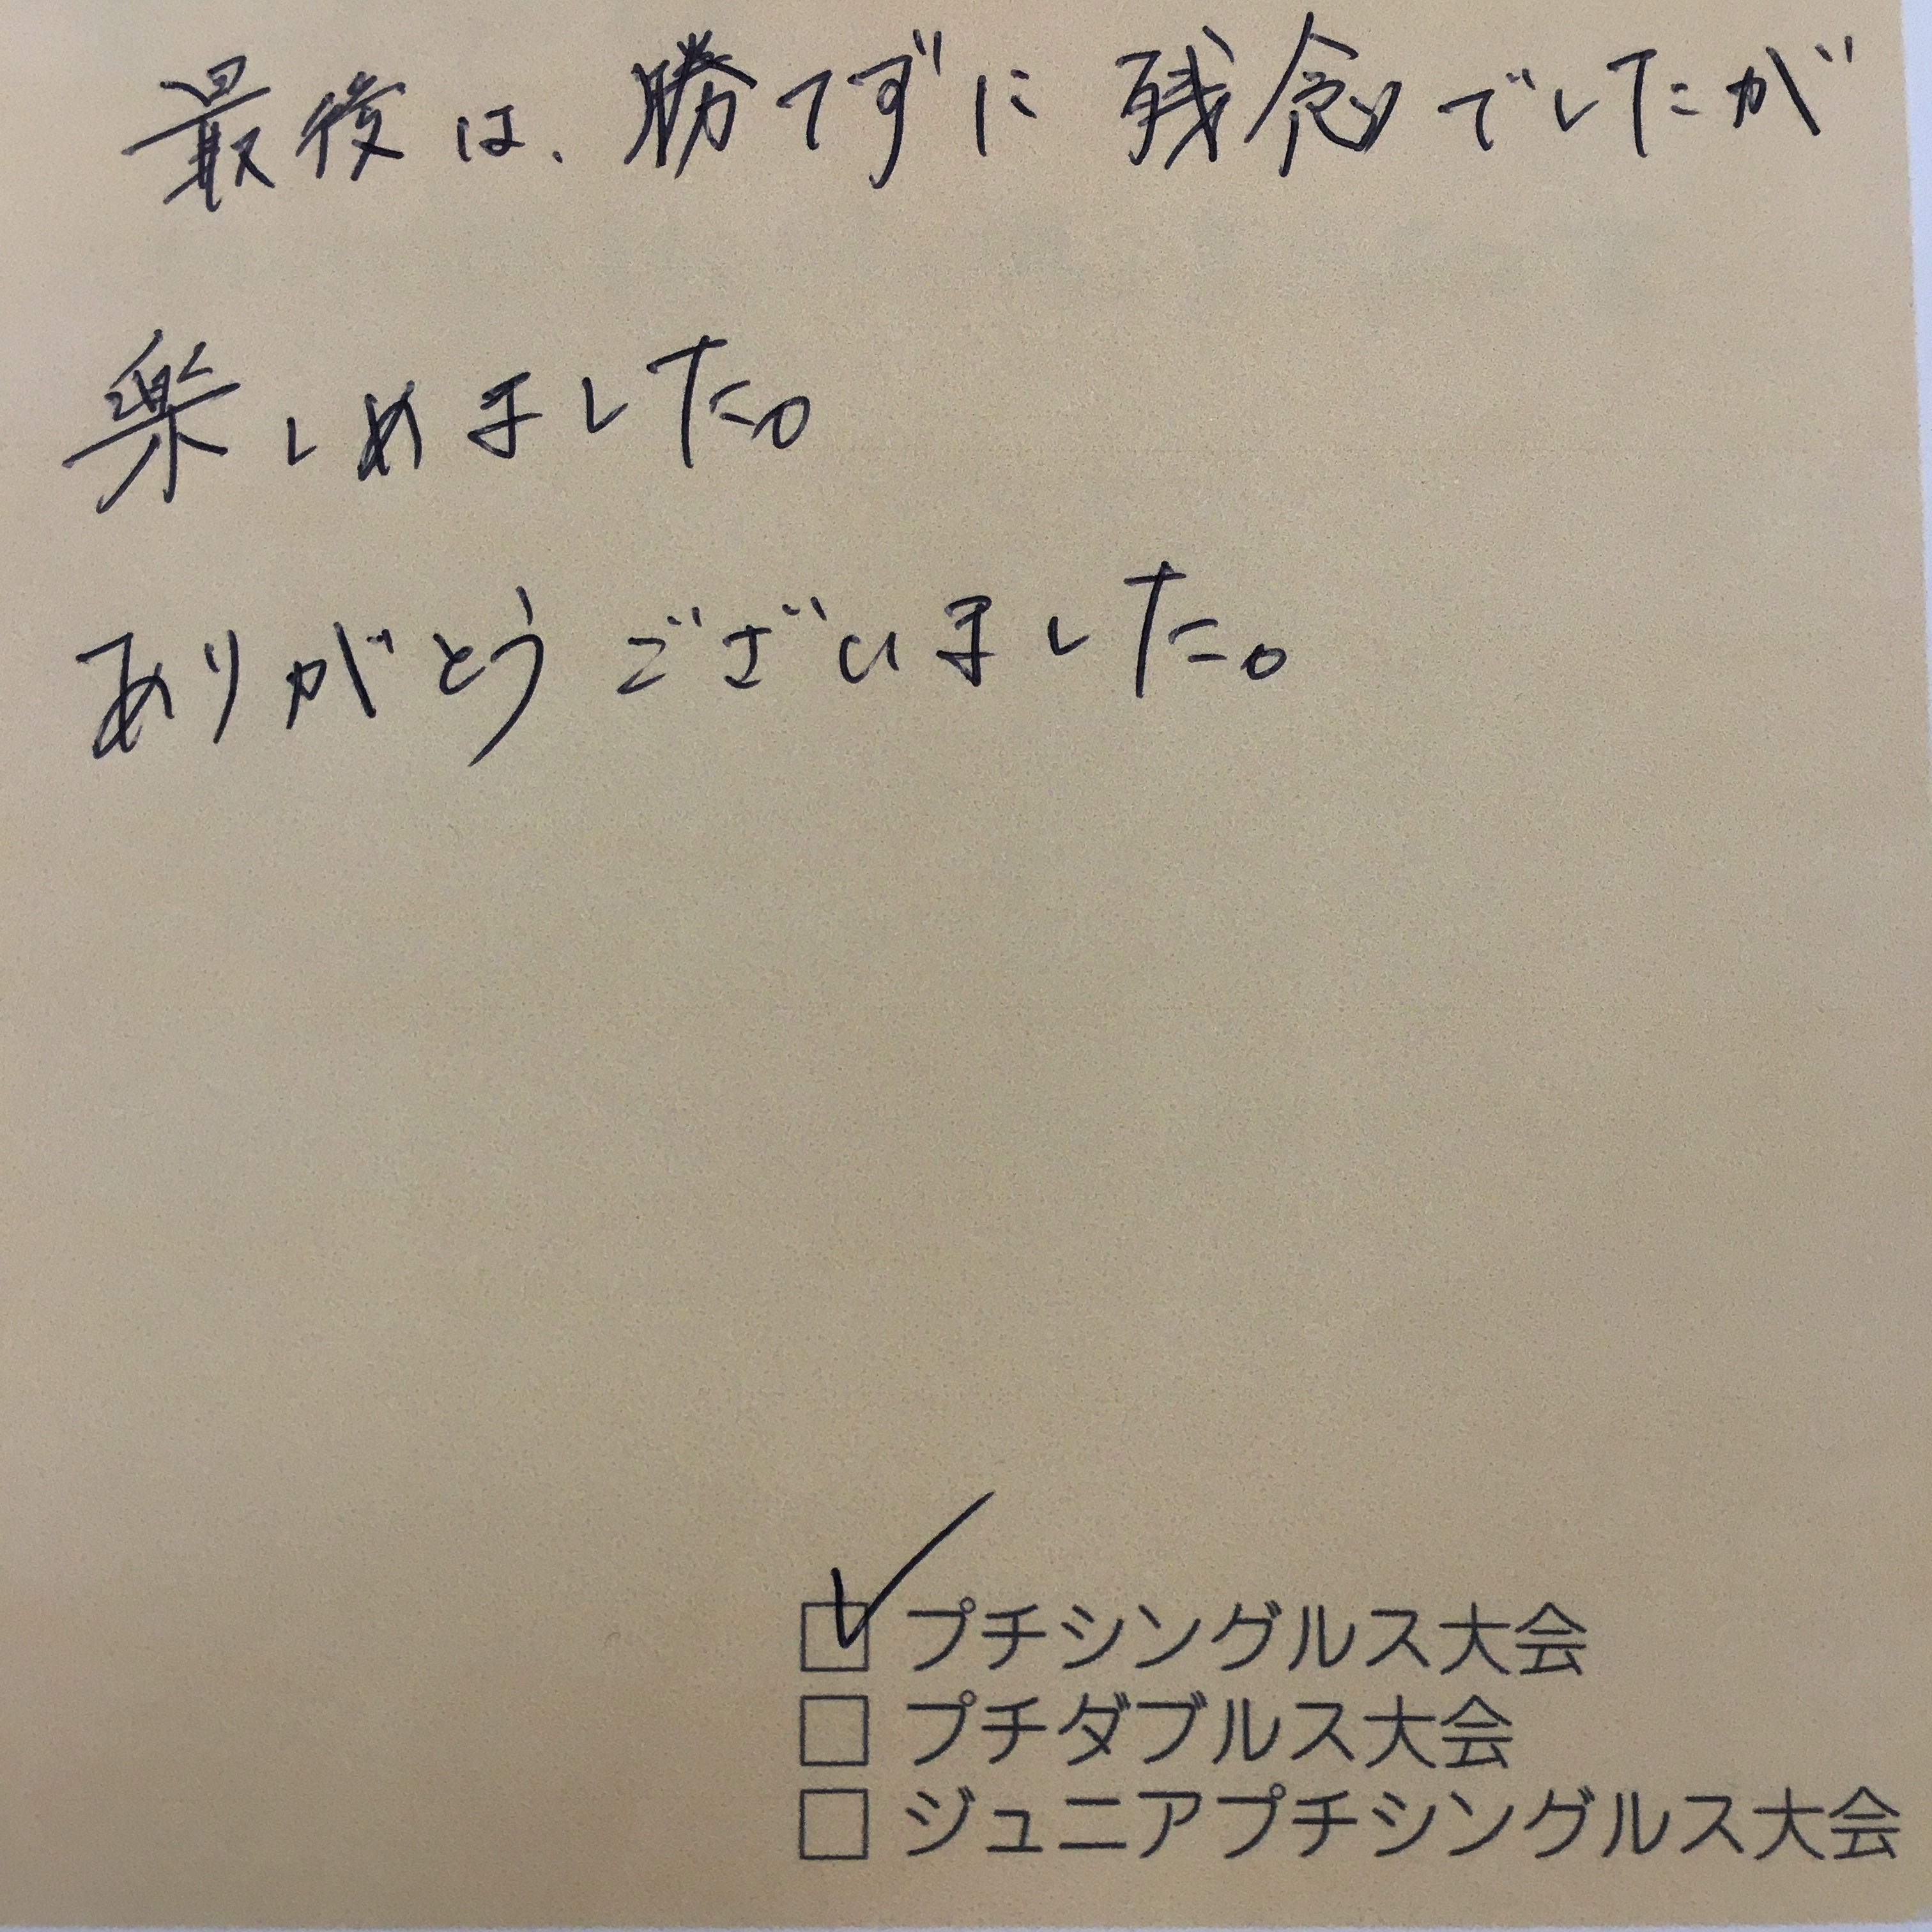 最後は、勝てずに残念でしたが
楽しめました。
ありがとうございました。
☑プチシングルス大会
□プチダブルス大会
□ジュニアプチシングルス大会